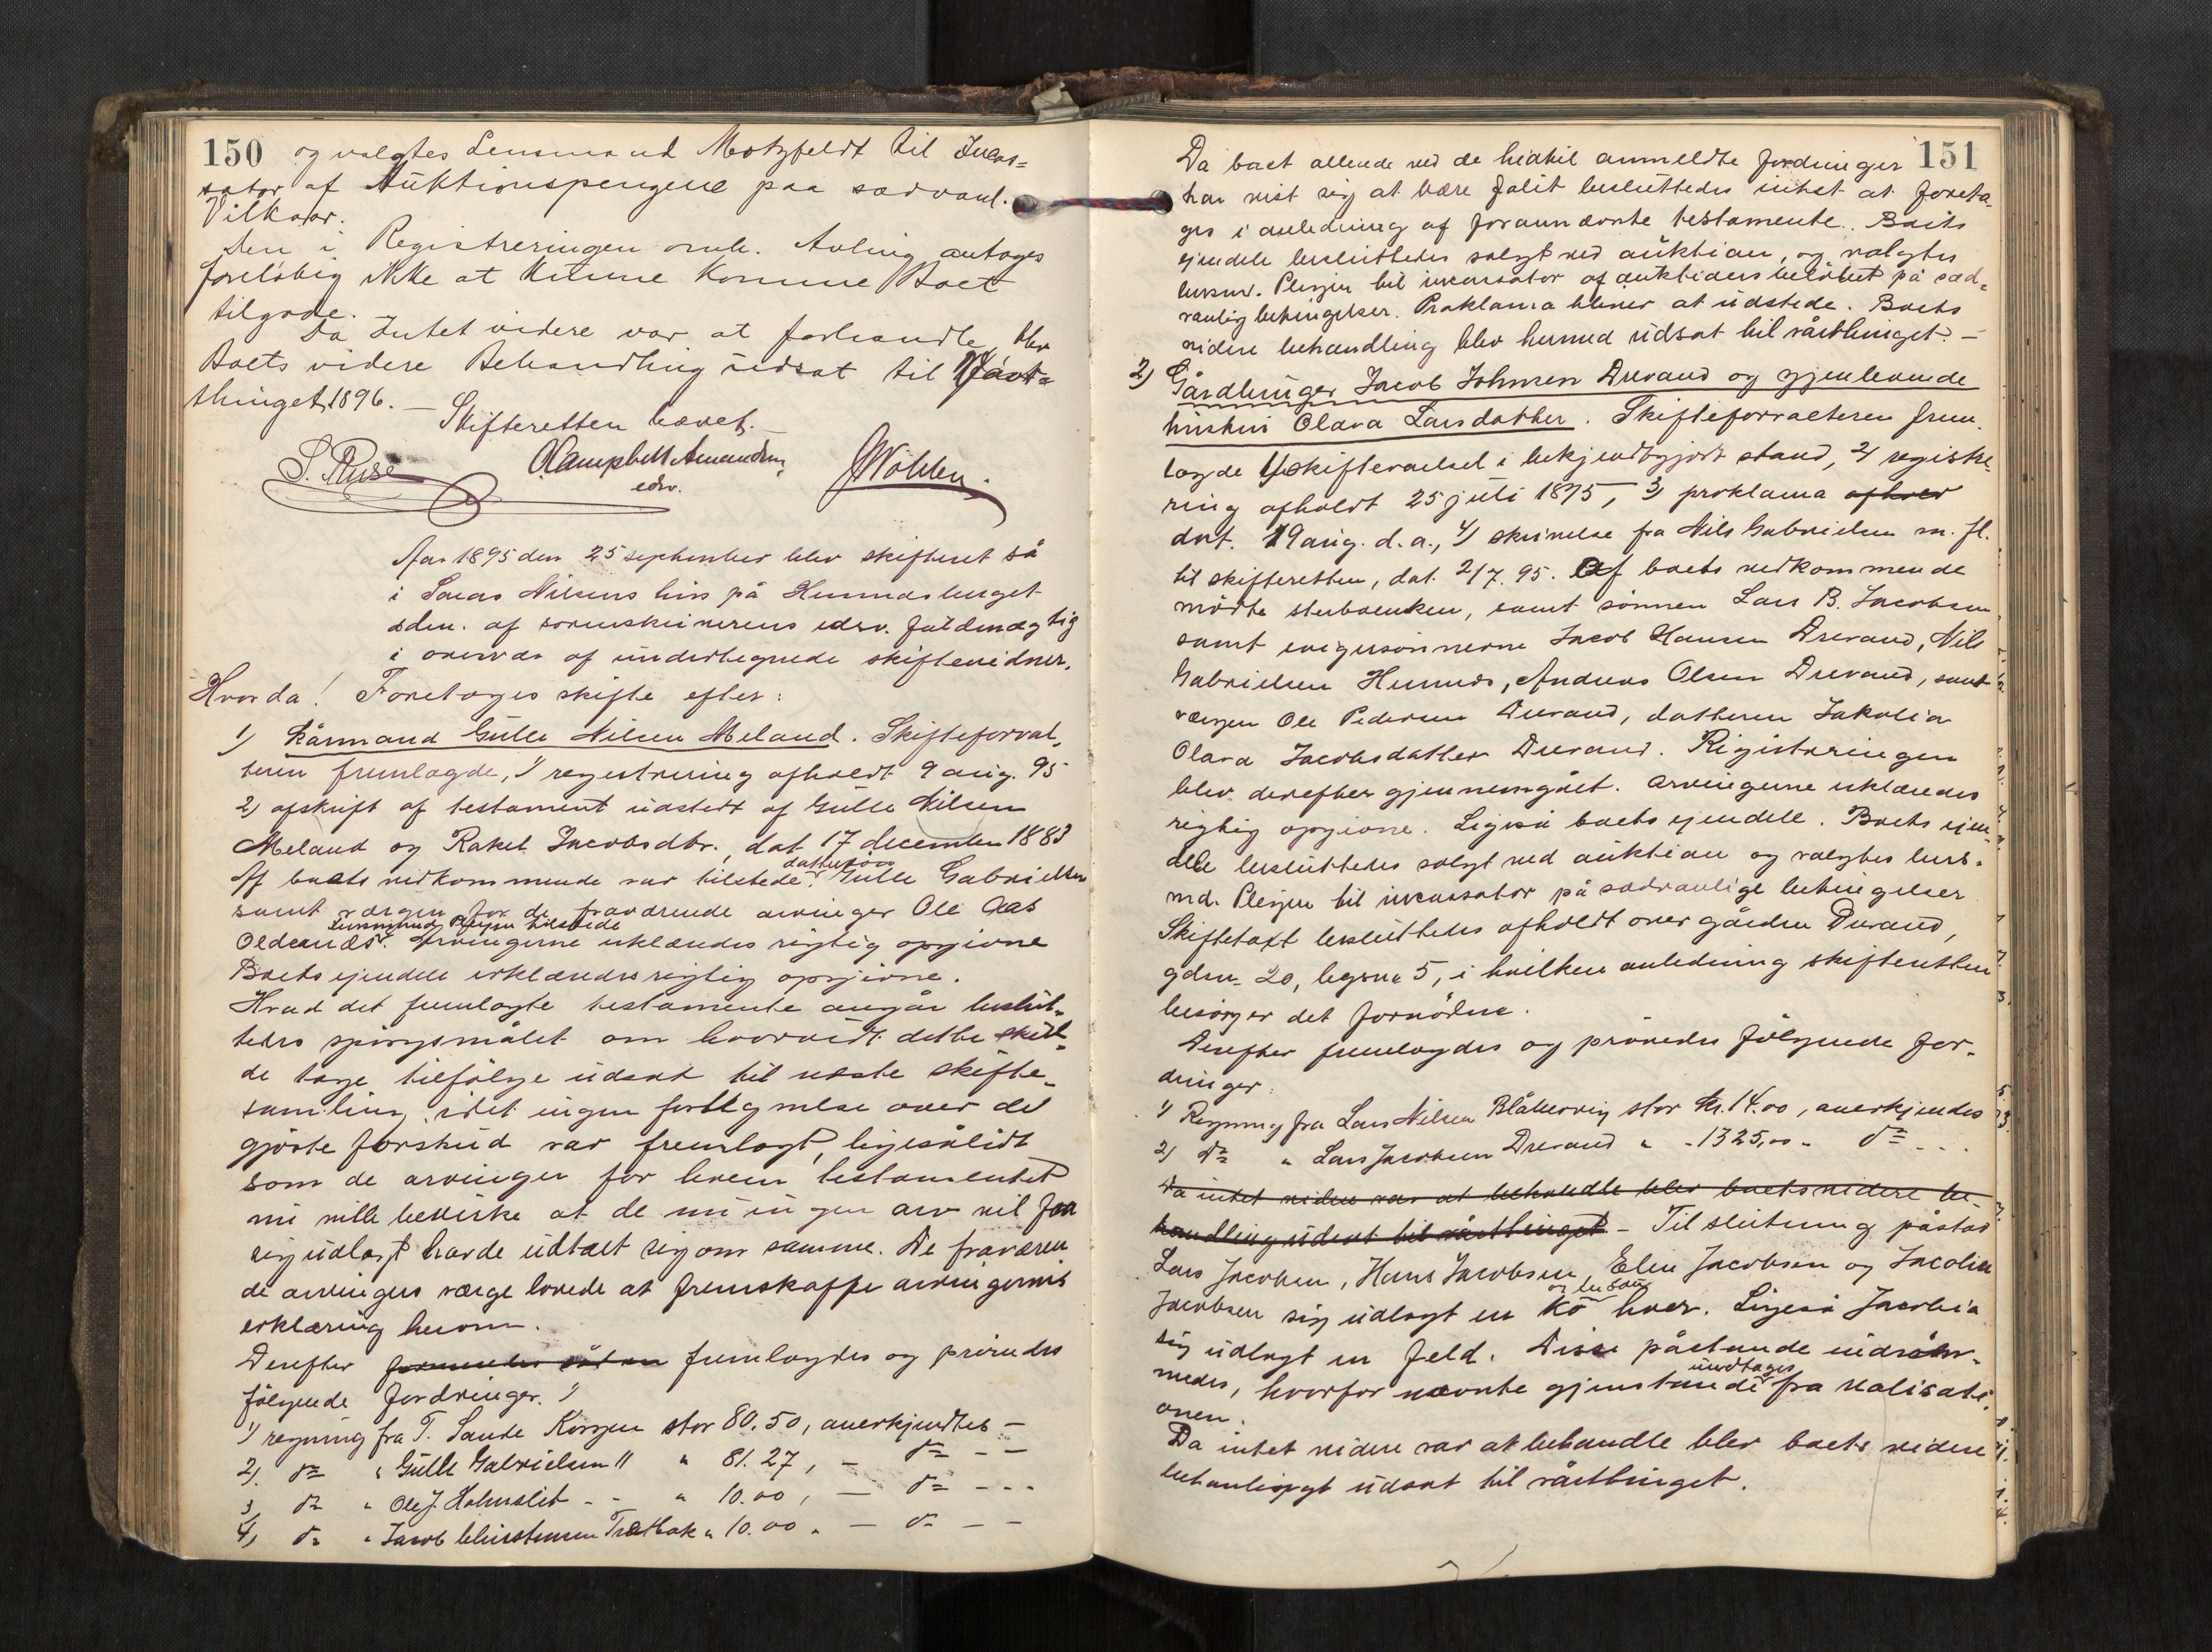 150 og valgtes Lensmand Motzfeldt til Incas=
sator af Auktionspengene paa sædvanl.
Vilkaar.
Den i Registreringen omh. Avling antages
foreløbig ikke at kunne komme Boet
tilgode.
Da Intet videre var at forhandle, blev
Boets videre Behandling udsat til Vaar=
thinget 1896. —
Skifteretten hævet. —
S. Ruse
O. Campbell Amundsen
edsv.
Wohlen.
Aar 1895 den 25 september blev skifteret så
i Nilsens hus på Hemnæsberget
adm. af sorenskriverens edsv. fuldmægtig
i overvær af undertegnede skiftevidner.
Hvorda! Foretoges skifte efter:
1) Kårmand Gulle Nilsen Meland. Skifteforval-
teren fremlagde, 1) registrering afholdt 9 aug. 95
2) afskrift af testament udstedt af Gulle Nilsen
Meland og Rakel Jacobsdtr., dat 17 december 1883
Af boets vedkommende var tilstede dattersøn Gulle Gabrielsen
samt værgen for de fraværende arvinger Ole Aas
Lensmand Plesjen tilstede
Oldernæs. Arvingerne erklæredes rigtig opgivne
Boets ejendele erklæredes rigtig opgivne.
Hvad det fremlagte testamente angår beslut-
tedes spørgsmålet om hvorvidt dette skul-
de tages tilfølge udsat til næste skifte-
samling, idet ingen fortegnelse over de
gjorte forskud var fremlagt, ligesålidt
som de arvinger for hvem testamentet
nu ville bevirke at de nu ingen arv vil faa
sig udlagt havde udtalt sig om samme. De fraværen
de arvingers værge lovede at fremskaffe arvingernes
erklæring herom.
Derefter fremlagdes og prøvedes
følgende fordringer. 1)
1) regning fra T. Sande Korgen stor 80.50, anerkjendtes —
2) do " Gulle Gabrielsen " " 81.27, — do — —
3) do " Ole J. Holmslet - - " 10.00, — do - - -
4) do " Jacob Christensen Trætbak " 10.00 " — do — —
151
Da boet allerede ved de hidtil anmeldte fordringer
har vist sig at være falit besluttedes intet at foreta-
ges i anledning af forannævnte testamente. Boets
ejendele besluttedes solgt ved auktion, og valgtes
lensm. Plesjen til incassator af auktionsbeløbet på sæd-
vanlig betingelser. Proklama bliver at udstede. Boets
videre behandling blev hermed udsat til vårthinget. —
2) Gårdbruger Jacob Johnsen Drevand og gjenlevende
hustru Olava Larsdatter. Skifteforvalteren frem-
lagde 1) skiftevarsel i bekjendtgjort stand, 2) registre-
ring afholdt 25 juli 1895, 3) proklama afhold
dat. 19 aug. d.a., 4) skrivelse fra Nils Gabrielsen m. fl.
til skifteretten, dat. 2/7. 95. Af boets vedkommende
mødte sterbænken, samt sønnen Lars B. Jacobsen
samt svigersønnerne Jacob Hansen Drevand, Nils
Gabrielsen Hemnæs, Andreas Olsen Drevand, samt
værgen Ole Pedersen Drevand, datteren Jakolia
Olava Jacobsdatter Drevand. Registreringen
blev derefter gjennemgået. Arvingerne erklæredes
rigtig opgivne. Ligeså boets ejendele. Boets ejen-
dele besluttedes solgt ved auktion og valgtes lens-
md. Plesjen til incassator på sædvanlige betingelser.
Skiftetaxt besluttedes afholdt over gården Drevand,
gdsn= 20, bgsn= 5, i hvilken anledning skifteretten
besørger det fornødne.
Derefter fremlagdes og prøvedes følgende for-
dringer:
1) Regning fra Lars Nilsen stor Kr. 14.00, anerkjendes
2) do " Lars Jacobsen Drevand " " 1325,00 " do - - -
Da intet videre var at behandle blev boets videre be-
handling udsat til vårthinget — Til slutning påstod
Lars Jacobsen, Hans Jacobsen, Elen Jacobsen og Jacolia
Jacobsen sig udlagt en ko og en sau hver. Ligeså Jacolia
sig udlagt en feld. Disse påstande indrøm-
medes, hvorfor nævnte gjenstande undtages fra realisati-
onen.
Da intet videre var at behandle blev boets videre
udsat til vårthinget.